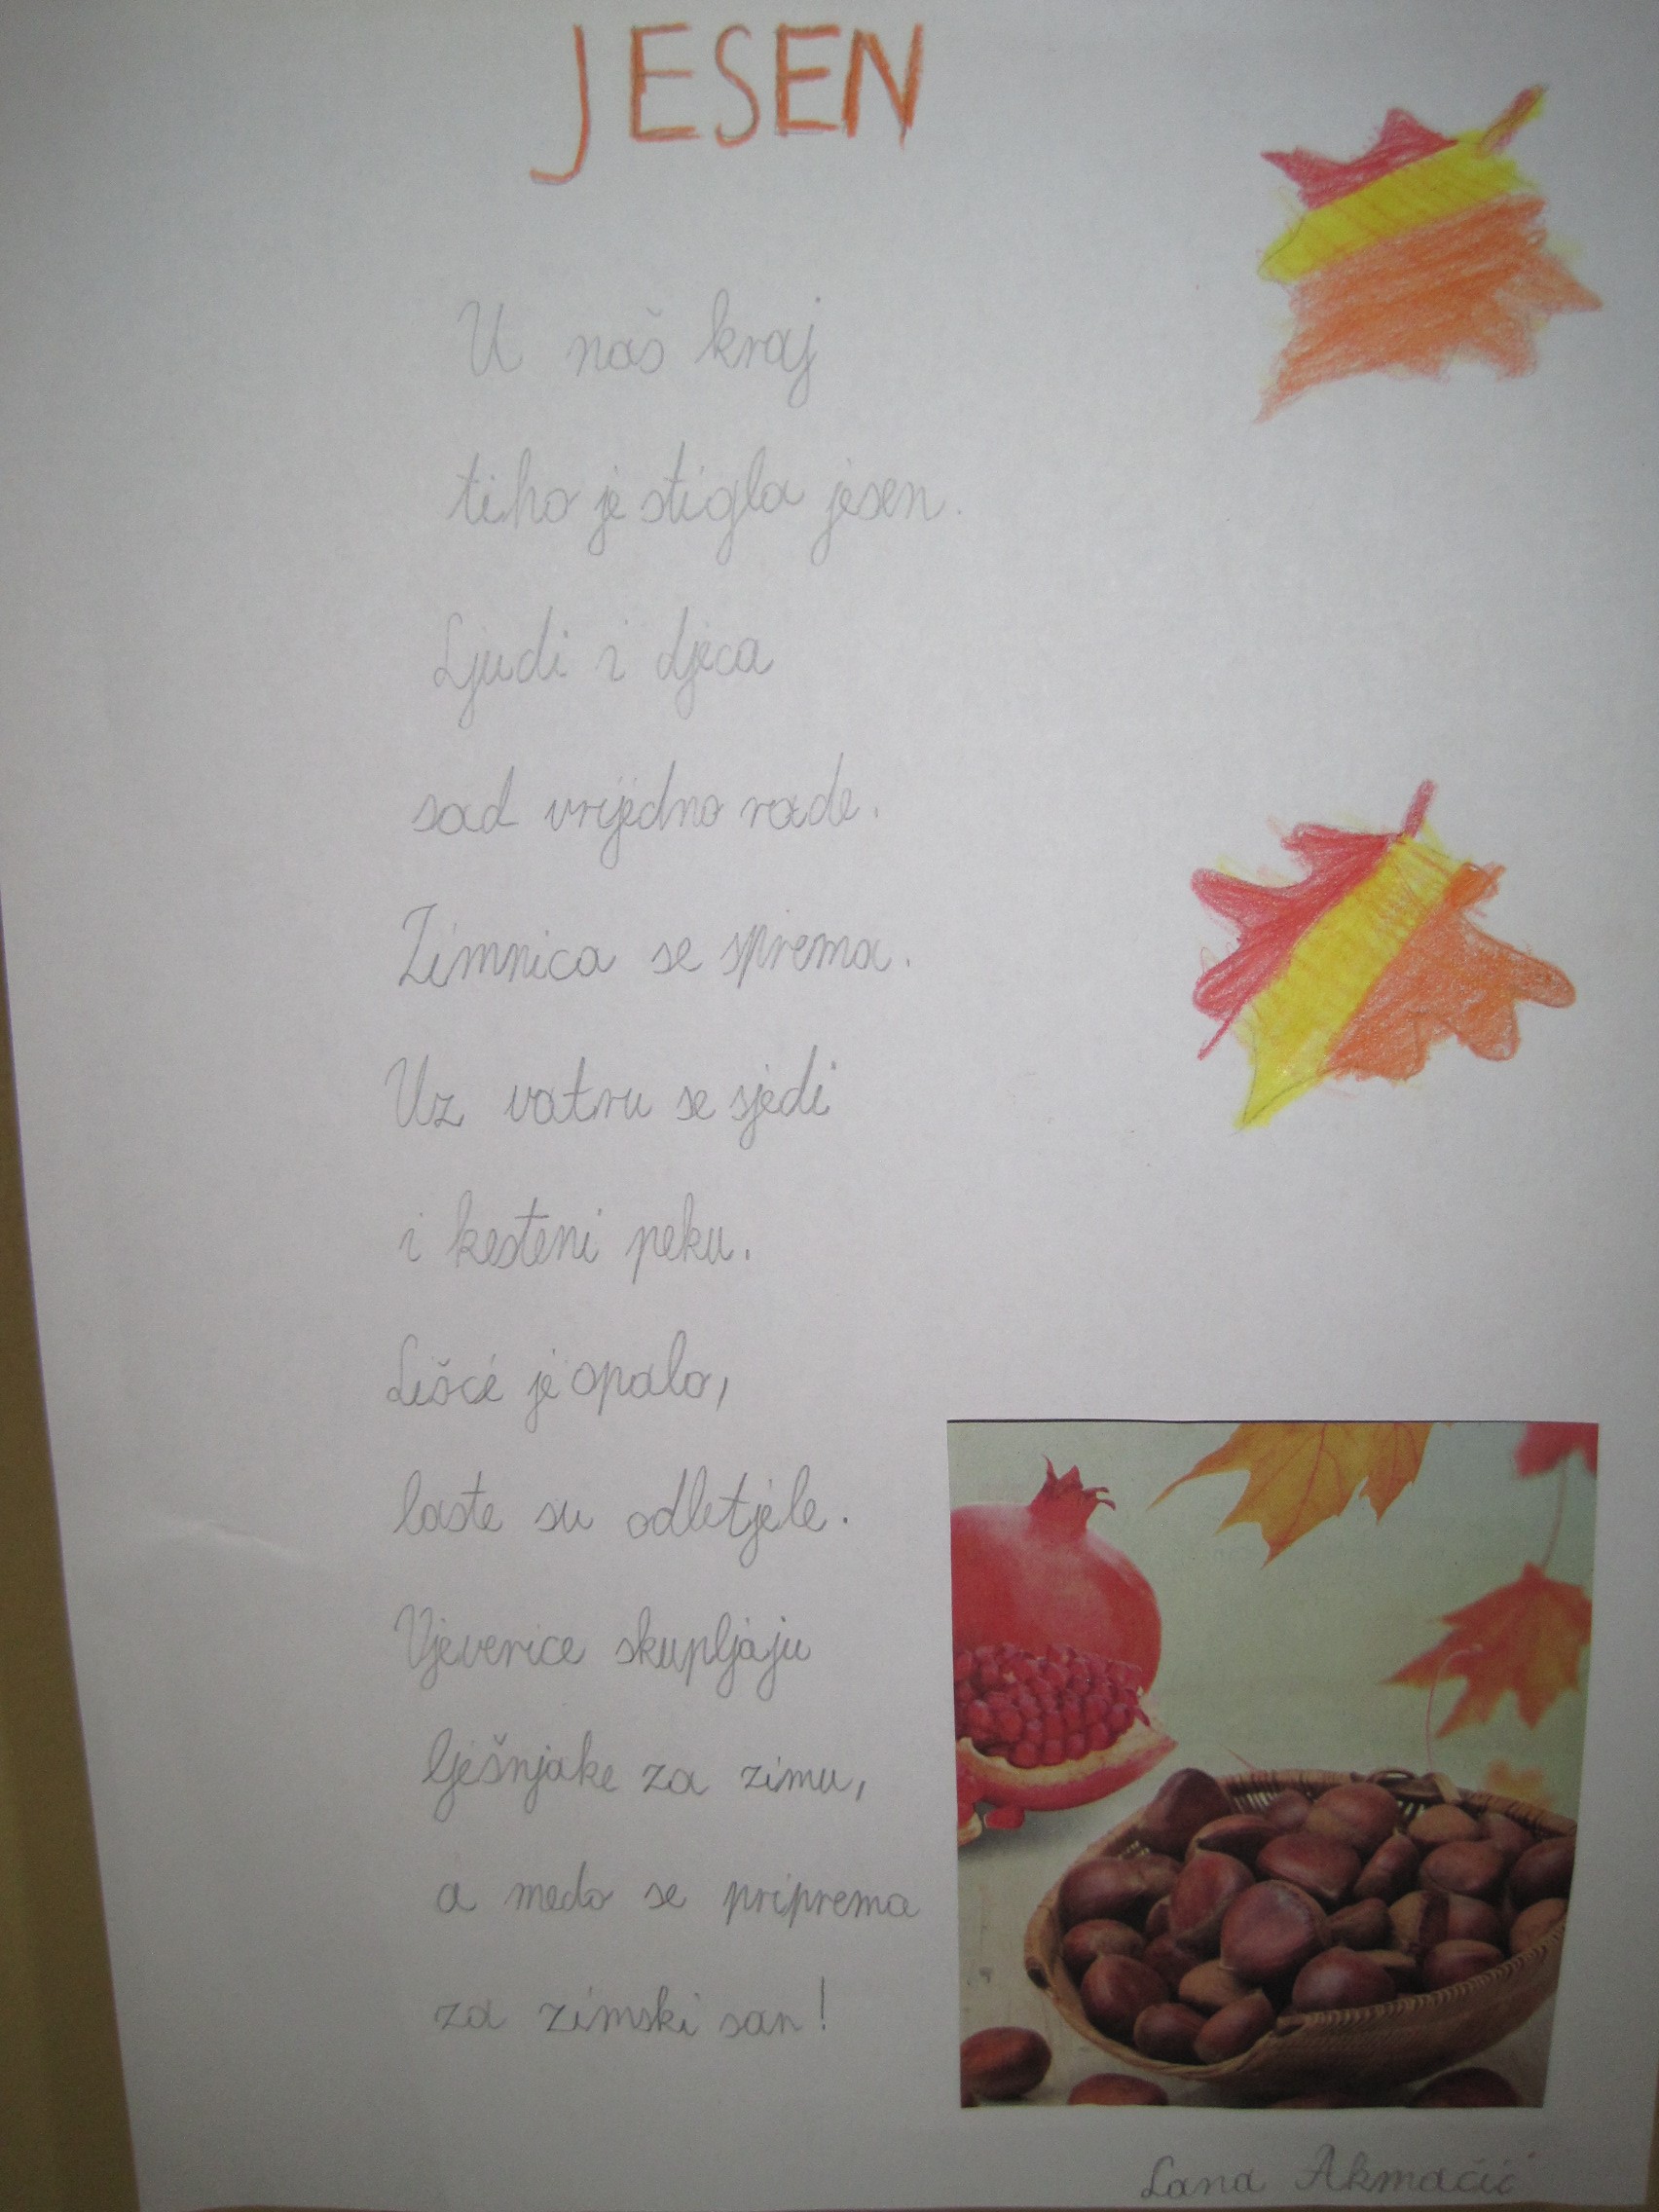 JESEN
U naš kraj
tiho je stigla jesen.
Ljudi i djeca
sad vrijedno rade.
Zimnica se sprema.
Uz vatru se sjedi
i kesteni peku.
Lišće je opalo,
laste su odletjele.
Vjeverice skupljaju
lješnjake za zimu,
a medo se priprema
za zimski san!
Lana Akmačić